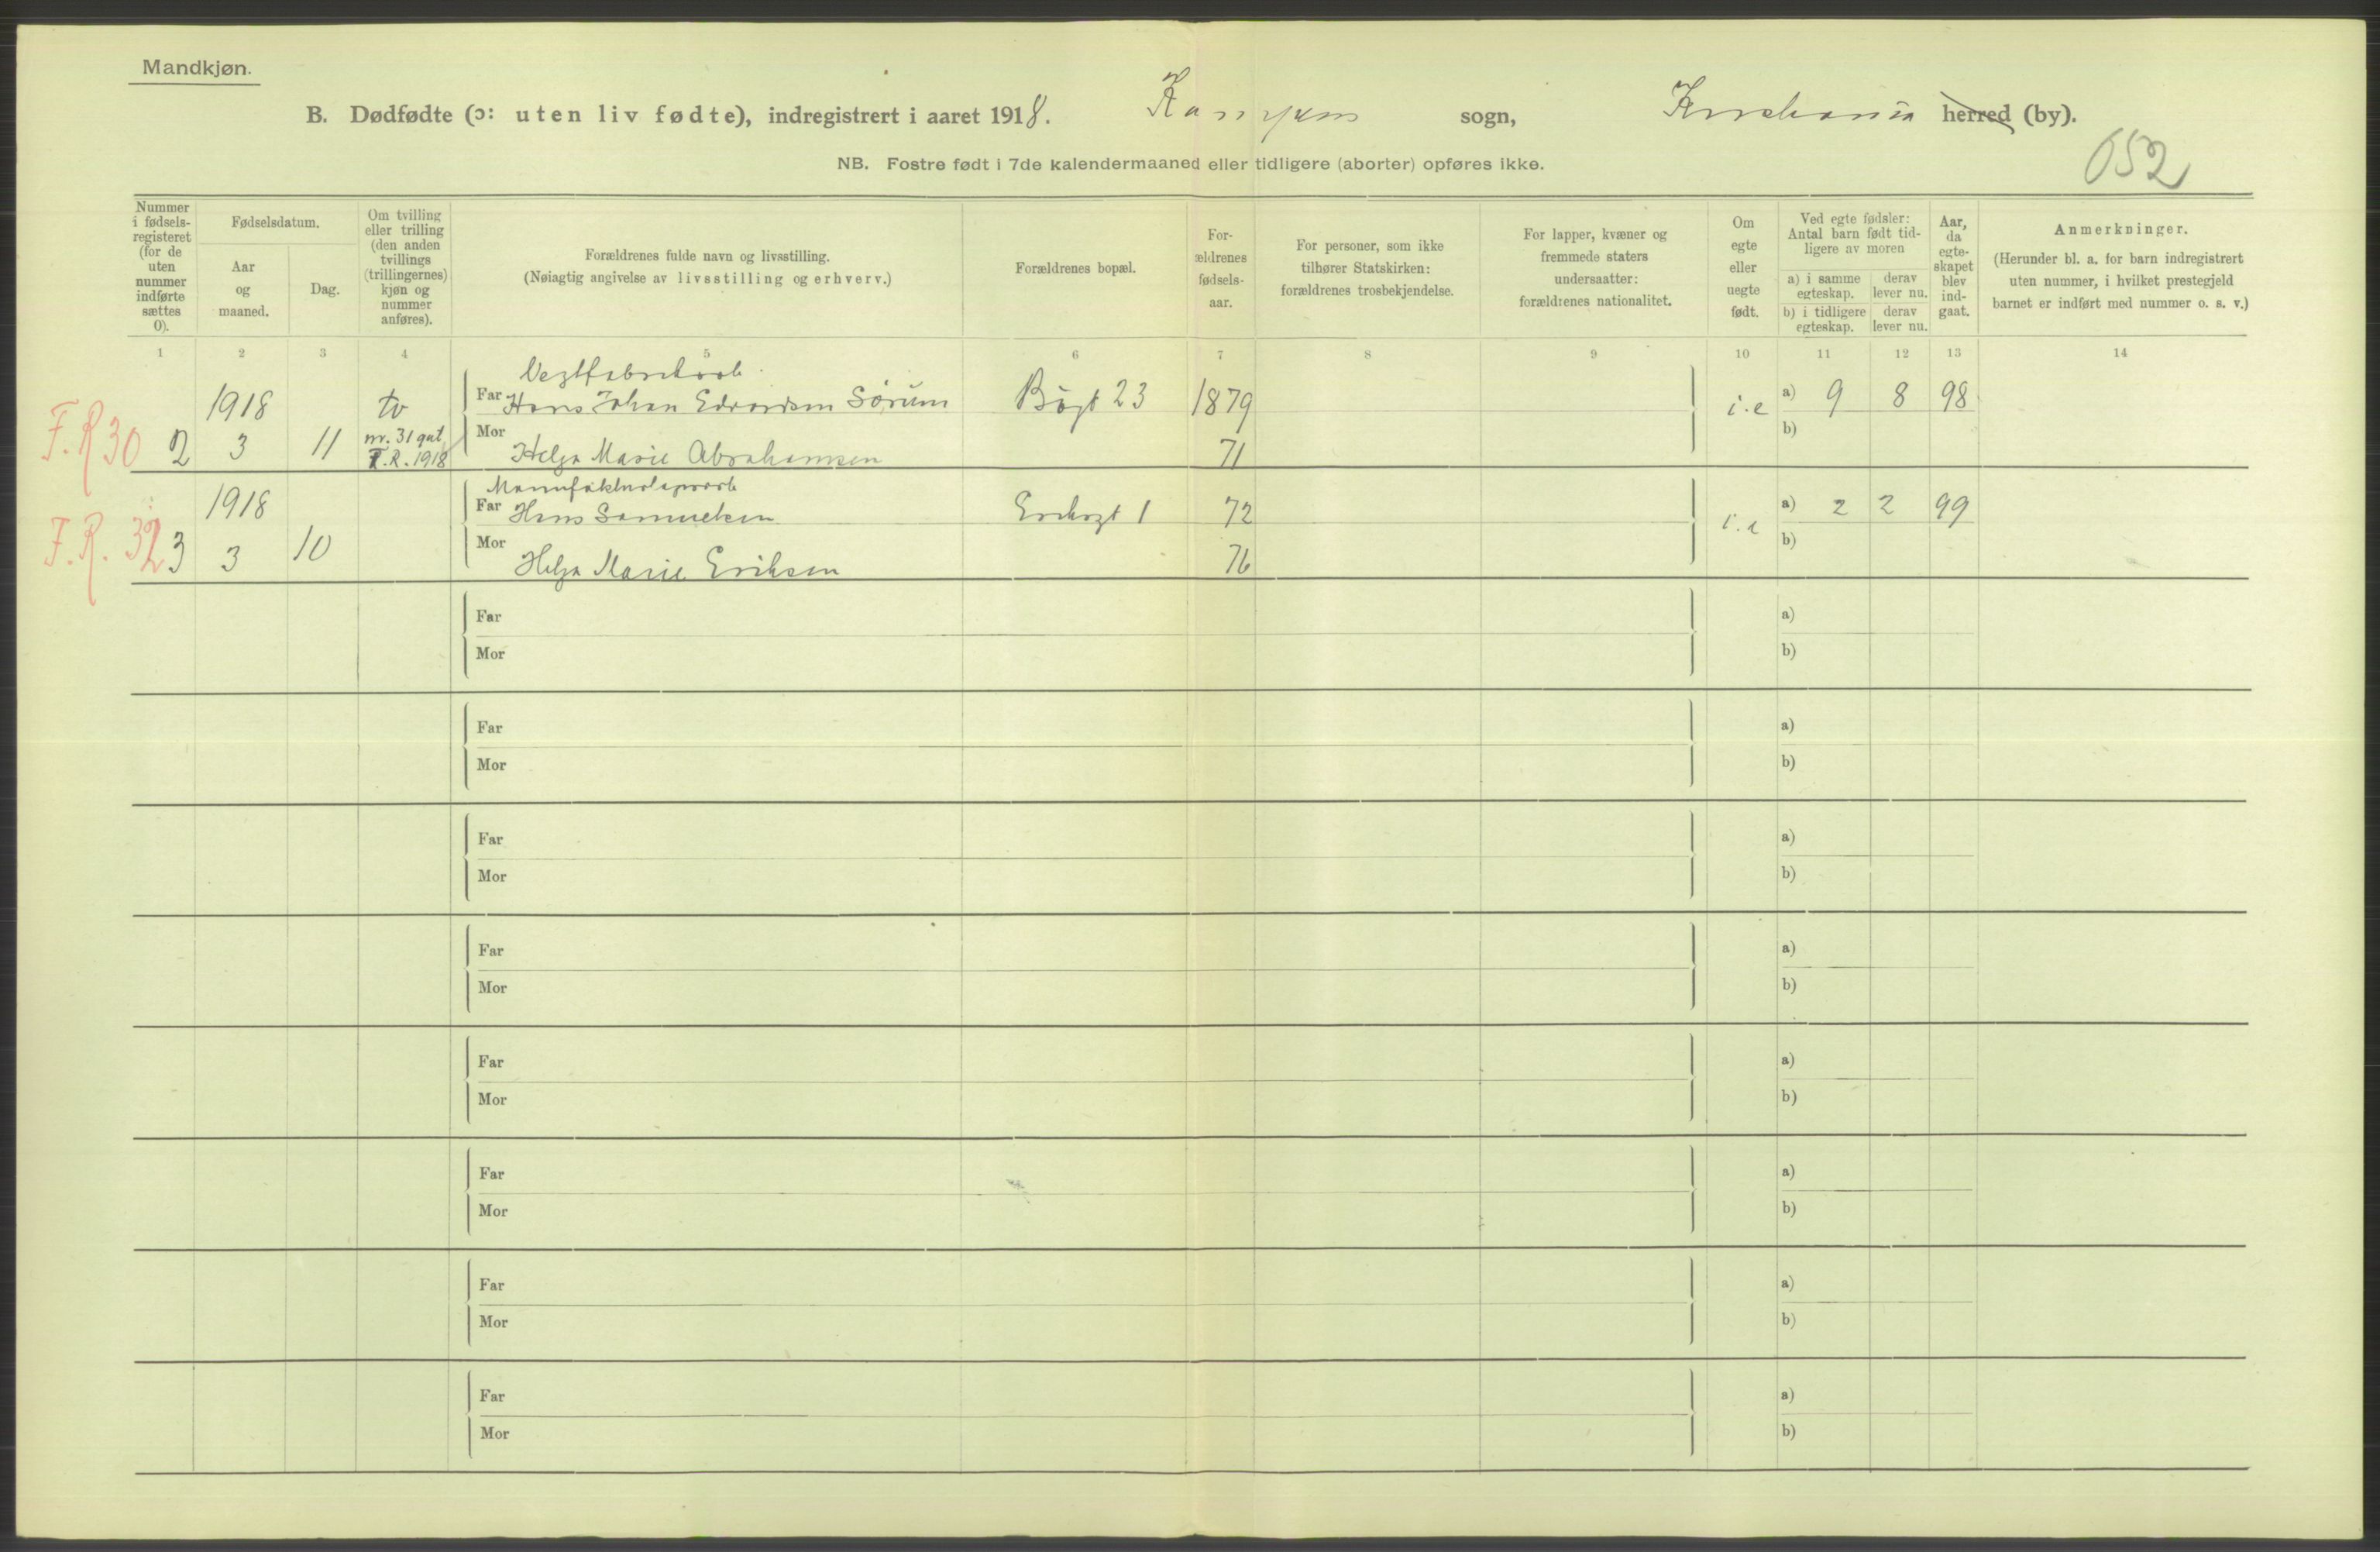 Mandkjøn.
B. Dødfødte (ɔ: uten liv fødte), indregistrert i aaret 1918. Kampen sogn, Kristiania herred (by).
652
NB. Fostre født i 7de kalendermaaned eller tidligere (aborter) opføres ikke.
Nummer i fødsels-registeret (for de uten nummer indførte sættes 0).
Fødselsdatum.
Aar og maaned.
Dag.
Om tvilling eller trilling (den anden tvillings (trillingernes) kjøn og nummer anføres).
Forældrenes fulde navn og livsstilling.
(Nøiagtig angivelse av livsstilling og erhverv.)
Forældrenes bopæl.
For-ældrenes fødsels-aar.
For personer, som ikke tilhører Statskirken: forældrenes trosbekjendelse.
For lapper, kvæner og fremmede staters undersaatter: forældrenes nationalitet.
Om egte eller uegte født.
Ved egte fødsler: Antal barn født tid-ligere av moren
a) i samme egteskap. derav lever nu.
b) i tidligere egteskap. derav lever nu.
Aar, da egte-skapet blev ind-gaat.
Anmerkninger.
(Herunder bl. a. for barn indregistrert uten nummer, i hvilket prestegjeld barnet er indført med nummer o. s. v.)
1 2 3 4 5 6 7 8 9 10 11 12 13 14
1918 tv Far Hans Johan Edvardsen Sørum Bøgt 23 1879 i.e a) 9 8 98
F.R 30 2 3 11 nr. 31 gut F.R. 1918 Mor Helga Marie Abrahamsen 71 b)
1918 Far Hans Samuelsen Eriksgt 1 72 a) 2 2 99
F.R. 32 3 3 10 Mor Helga Marie Eriksen 76 b)
Far a)
Mor b)
Far a)
Mor b)
Far a)
Mor b)
Far a)
Mor b)
Far a)
Mor b)
Far a)
Mor b)
Far a)
Mor b)
Far a)
Mor b)